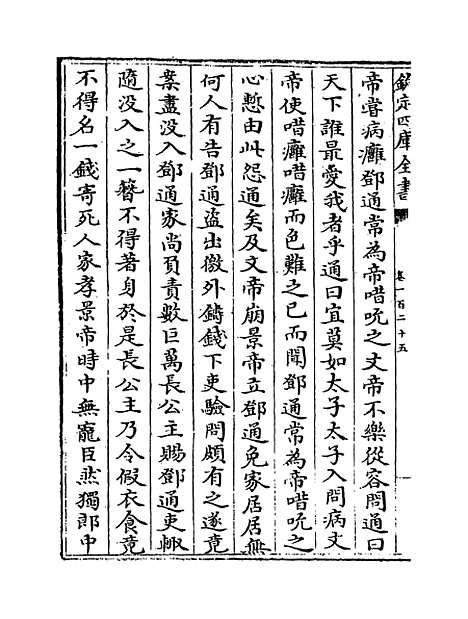 欽定四庫全書
卷一百二十五
帝嘗病癰鄧通常為帝唶吮之文帝不樂從容問通曰
天下誰最愛我者乎通曰宜莫如太子太子入問病文
帝使唶癰唶癰而色難之已而聞鄧通常為帝唶吮之
心慙由此怨通矣及文帝崩景帝立鄧通免家居居無
何人有告鄧通盜出徼外鑄錢下吏驗問頗有之遂竟
案盡没入鄧通家尚負責數巨萬長公主賜鄧通吏輙
隨没入之一簪不得著身於是長公主乃令假衣食竟
不得名一錢寄死人家孝景帝時中無寵臣然獨郎中